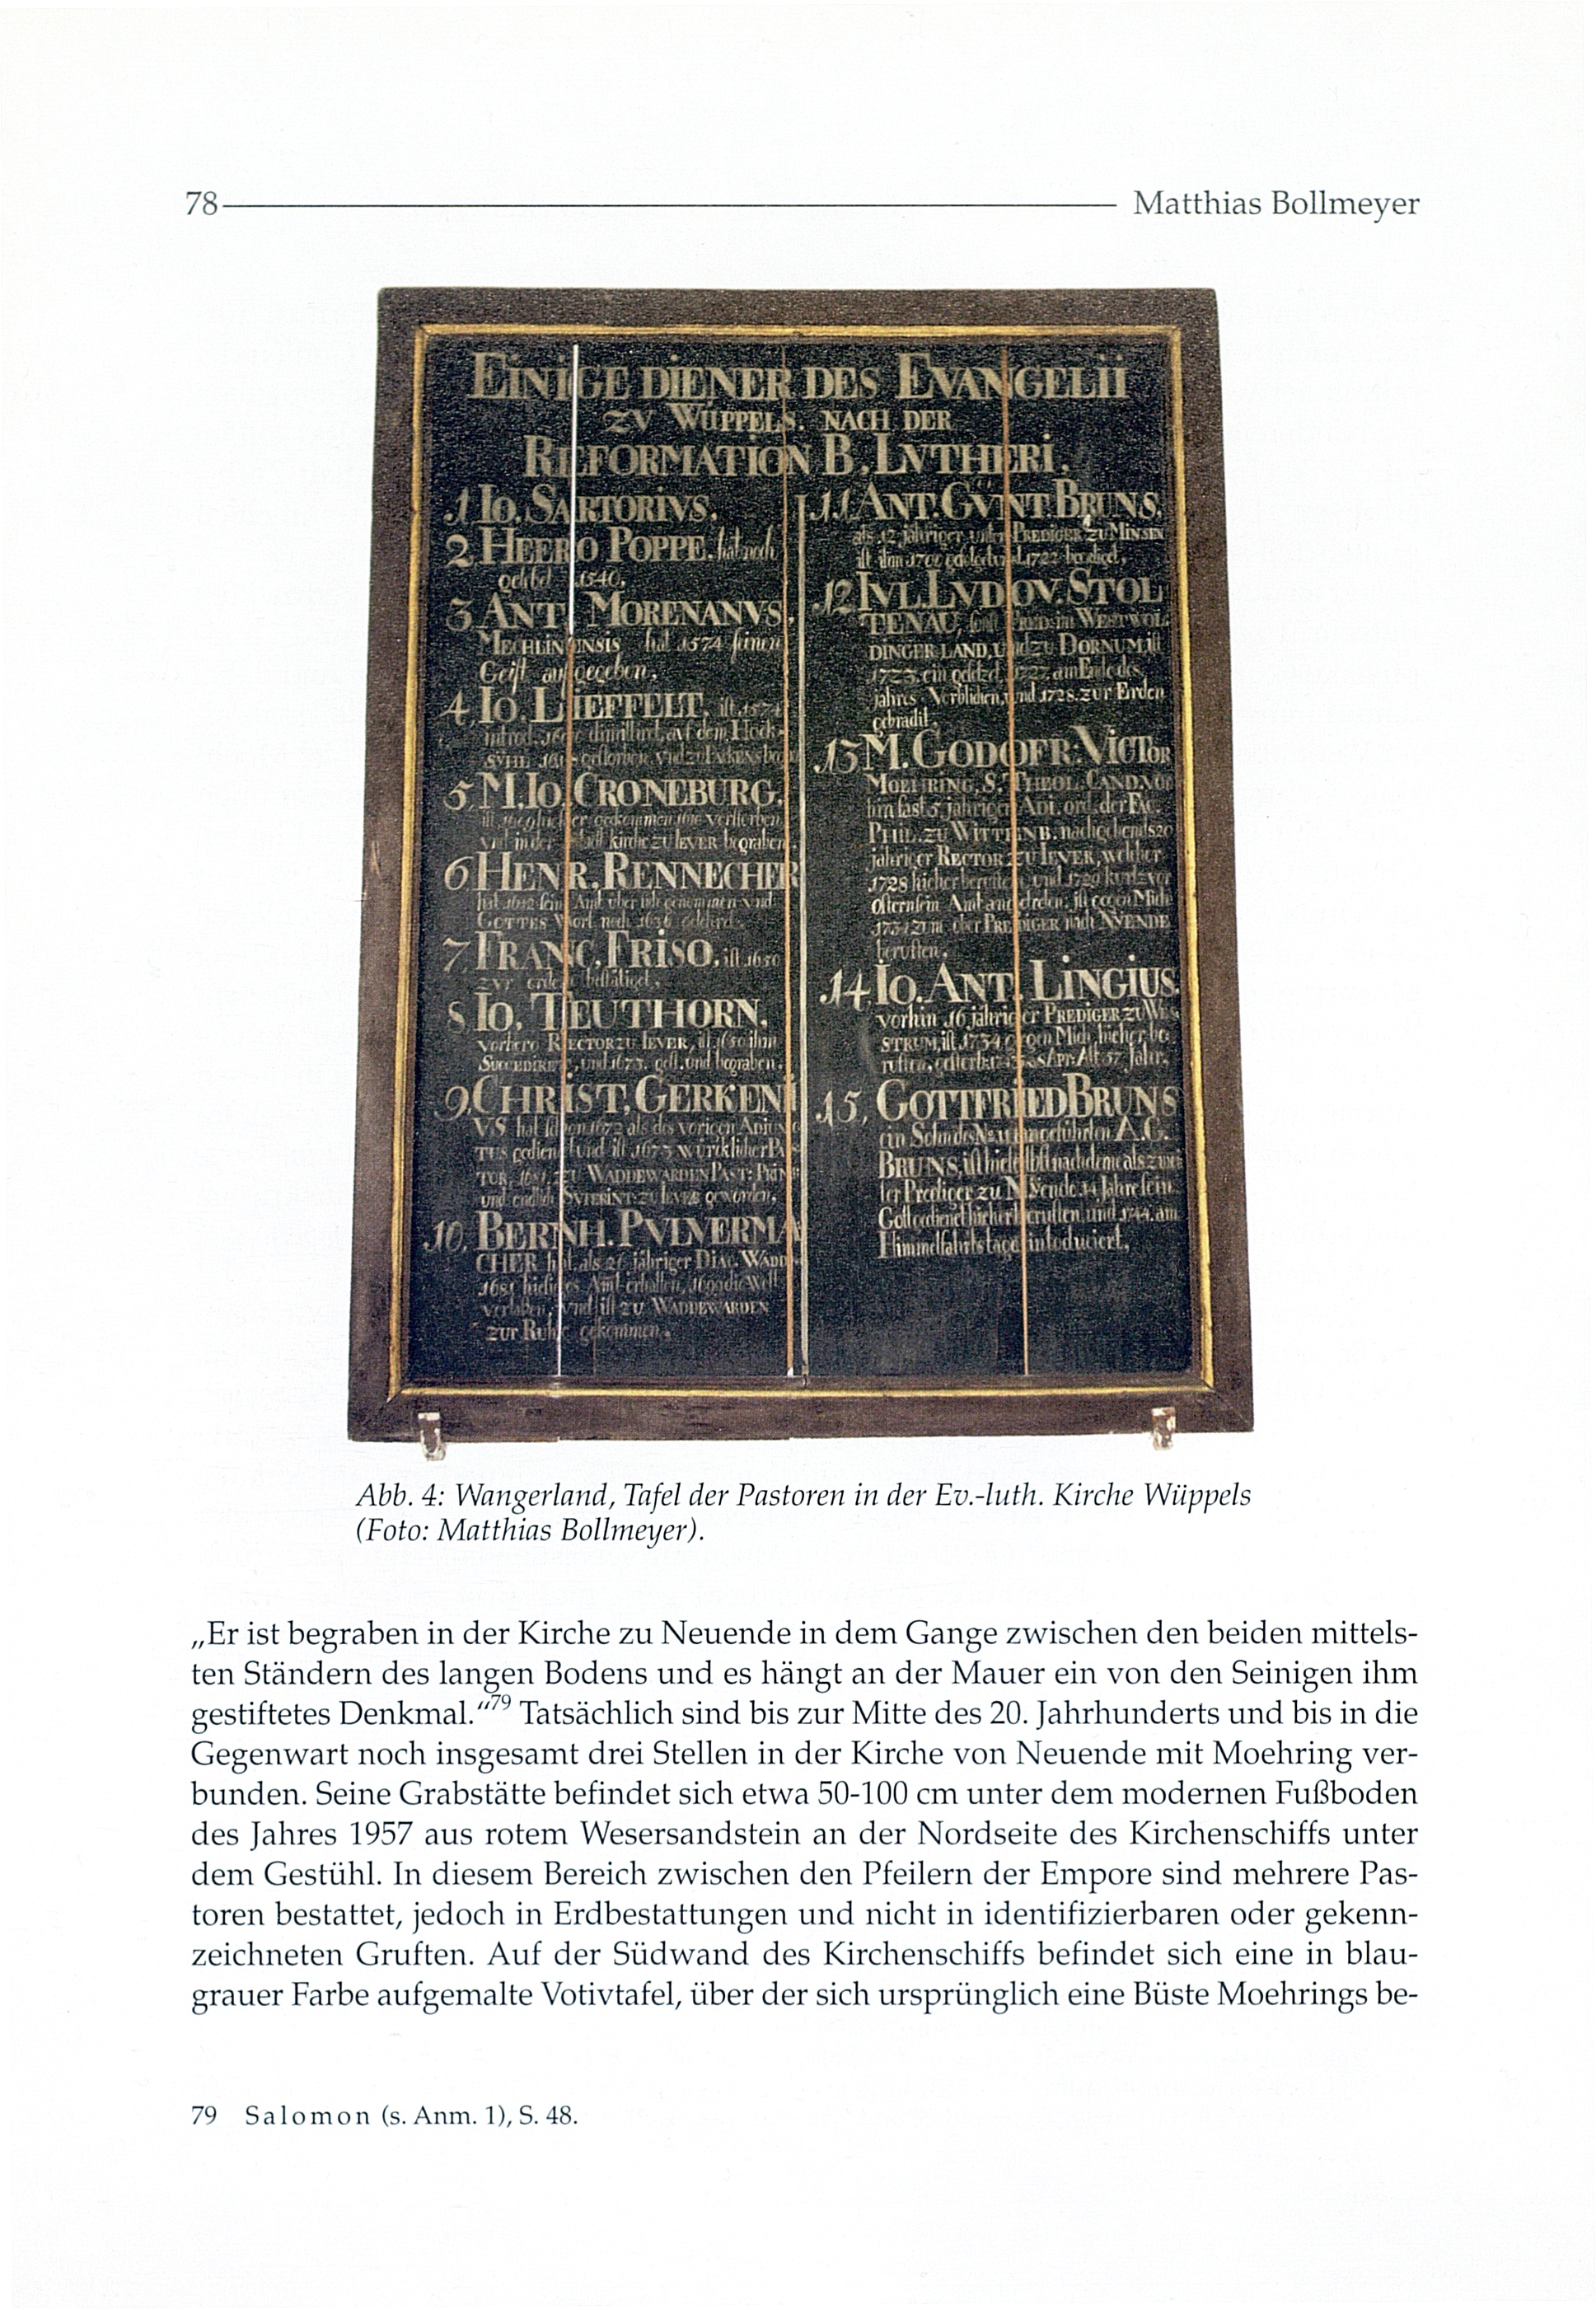 78 Matthias Bollmeyer
EINIGE DIENER DES EVANGELII
ZV WÜPPELS. NACH DER
REFORMATION B. LVTHERI.
1 IO. SARTORIVS.
2 HEERO POPPE. hat noch
gelebet 1540.
3 ANT. MORENANVS,
MECHLINENSIS hat 1574 seinen
Geist aufgegeben.
4 IO. LIEFFELT, ist 1574
5 M. IO. CRONEBURG.
verstorben
vnd in der kirche zu IEVER begraben
6 HENR. RENNECHER
hat 1612 sein Amt
GOTTES Wort noch 1636
7 FRANC. FRISO, ist 1650
ZVR erden bestätiget.
8 IO. TEUTHORN,
vorhero RECTOR ZU IEVER, ist 1650 ihm
SUCCEDIRET, und 1673. gest. und begraben.
9. CHRIST. GERKENI
VS hat schon 1672 als des vorigen ADIUNC
TUS gedienet und ist 1673 würcklicher PAS
TOR, ZU WADDEWARDEN PAST: PRIM
und endlich SVPERINT: zu IEVER geworden.
10. BERNH. PVLVERMA
CHER hat als 26 jähriger DIAC. WADD
hiesiges Amt erhalten, 1699 die Welt
verlaßen, vnd ist zu WADDEWARDEN
zur Ruhe gekommen.
11 ANT. GVNT. BRUNS,
als 12 jähriger PREDIGER ZU MINSEN
12 IVL. LVDOV. STOL
TENAU, sonst PRED: im WESTWOL
DINGER LAND, Und zu DORNUM ist
1723. ein am Ende des
jahres Verblichen, und 1728. zur Erden
gebracht.
13 M. GODOFR: VICTOR
MOEHRING, S. THEOL. CAND. VOR
hin fast 5 jähriger ADI. ord. der FAC.
PHIL. ZU WITTENB. nachgehends 20
jähriger RECTOR ZU IEVER, welcher
1728 hieher beruffen, und 1729 kurtz vor
Ostern sein Amt angetreten, ist gegen Mich
1734 zum PREDIGER nach NVENDE
beruffen.
14 IO. ANT. LINGIUS
vorhin 16 jähriger PREDIGER ZU WES
STRUM, ist 1734 gegen Mich. hieher be
15, GOTTFRIED BRUNS
ein Sohn des No 11 angeführten A. G.
BRUNS, ist hieselbst nachdem er als zwei
ter Prediger zu NVende 14 Jahre sein
Gott gedienet hieher beruffen und 1744. am
Himmelfahrtstage intoduciert.
Abb. 4: Wangerland, Tafel der Pastoren in der Ev.-luth. Kirche Wüppels
(Foto: Matthias Bollmeyer).
„Er ist begraben in der Kirche zu Neuende in dem Gange zwischen den beiden mittels-
ten Ständern des langen Bodens und es hängt an der Mauer ein von den Seinigen ihm
gestiftetes Denkmal.“79 Tatsächlich sind bis zur Mitte des 20. Jahrhunderts und bis in die
Gegenwart noch insgesamt drei Stellen in der Kirche von Neuende mit Moehring ver-
bunden. Seine Grabstätte befindet sich etwa 50-100 cm unter dem modernen Fußboden
des Jahres 1957 aus rotem Wesersandstein an der Nordseite des Kirchenschiffs unter
dem Gestühl. In diesem Bereich zwischen den Pfeilern der Empore sind mehrere Pas-
toren bestattet, jedoch in Erdbestattungen und nicht in identifizierbaren oder gekenn-
zeichneten Gruften. Auf der Südwand des Kirchenschiffs befindet sich eine in blau-
grauer Farbe aufgemalte Votivtafel, über der sich ursprünglich eine Büste Moehrings be-
79 Salomon (s. Anm. 1), S. 48.